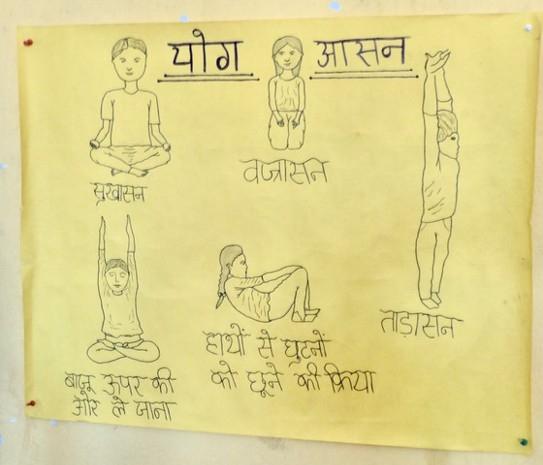 योग आसन
सुखासन
वज्रासन
ताड़ासन
बाजू ऊपर की
ओर ले जाना
हाथों से घुटनों
को छूने की क्रिया